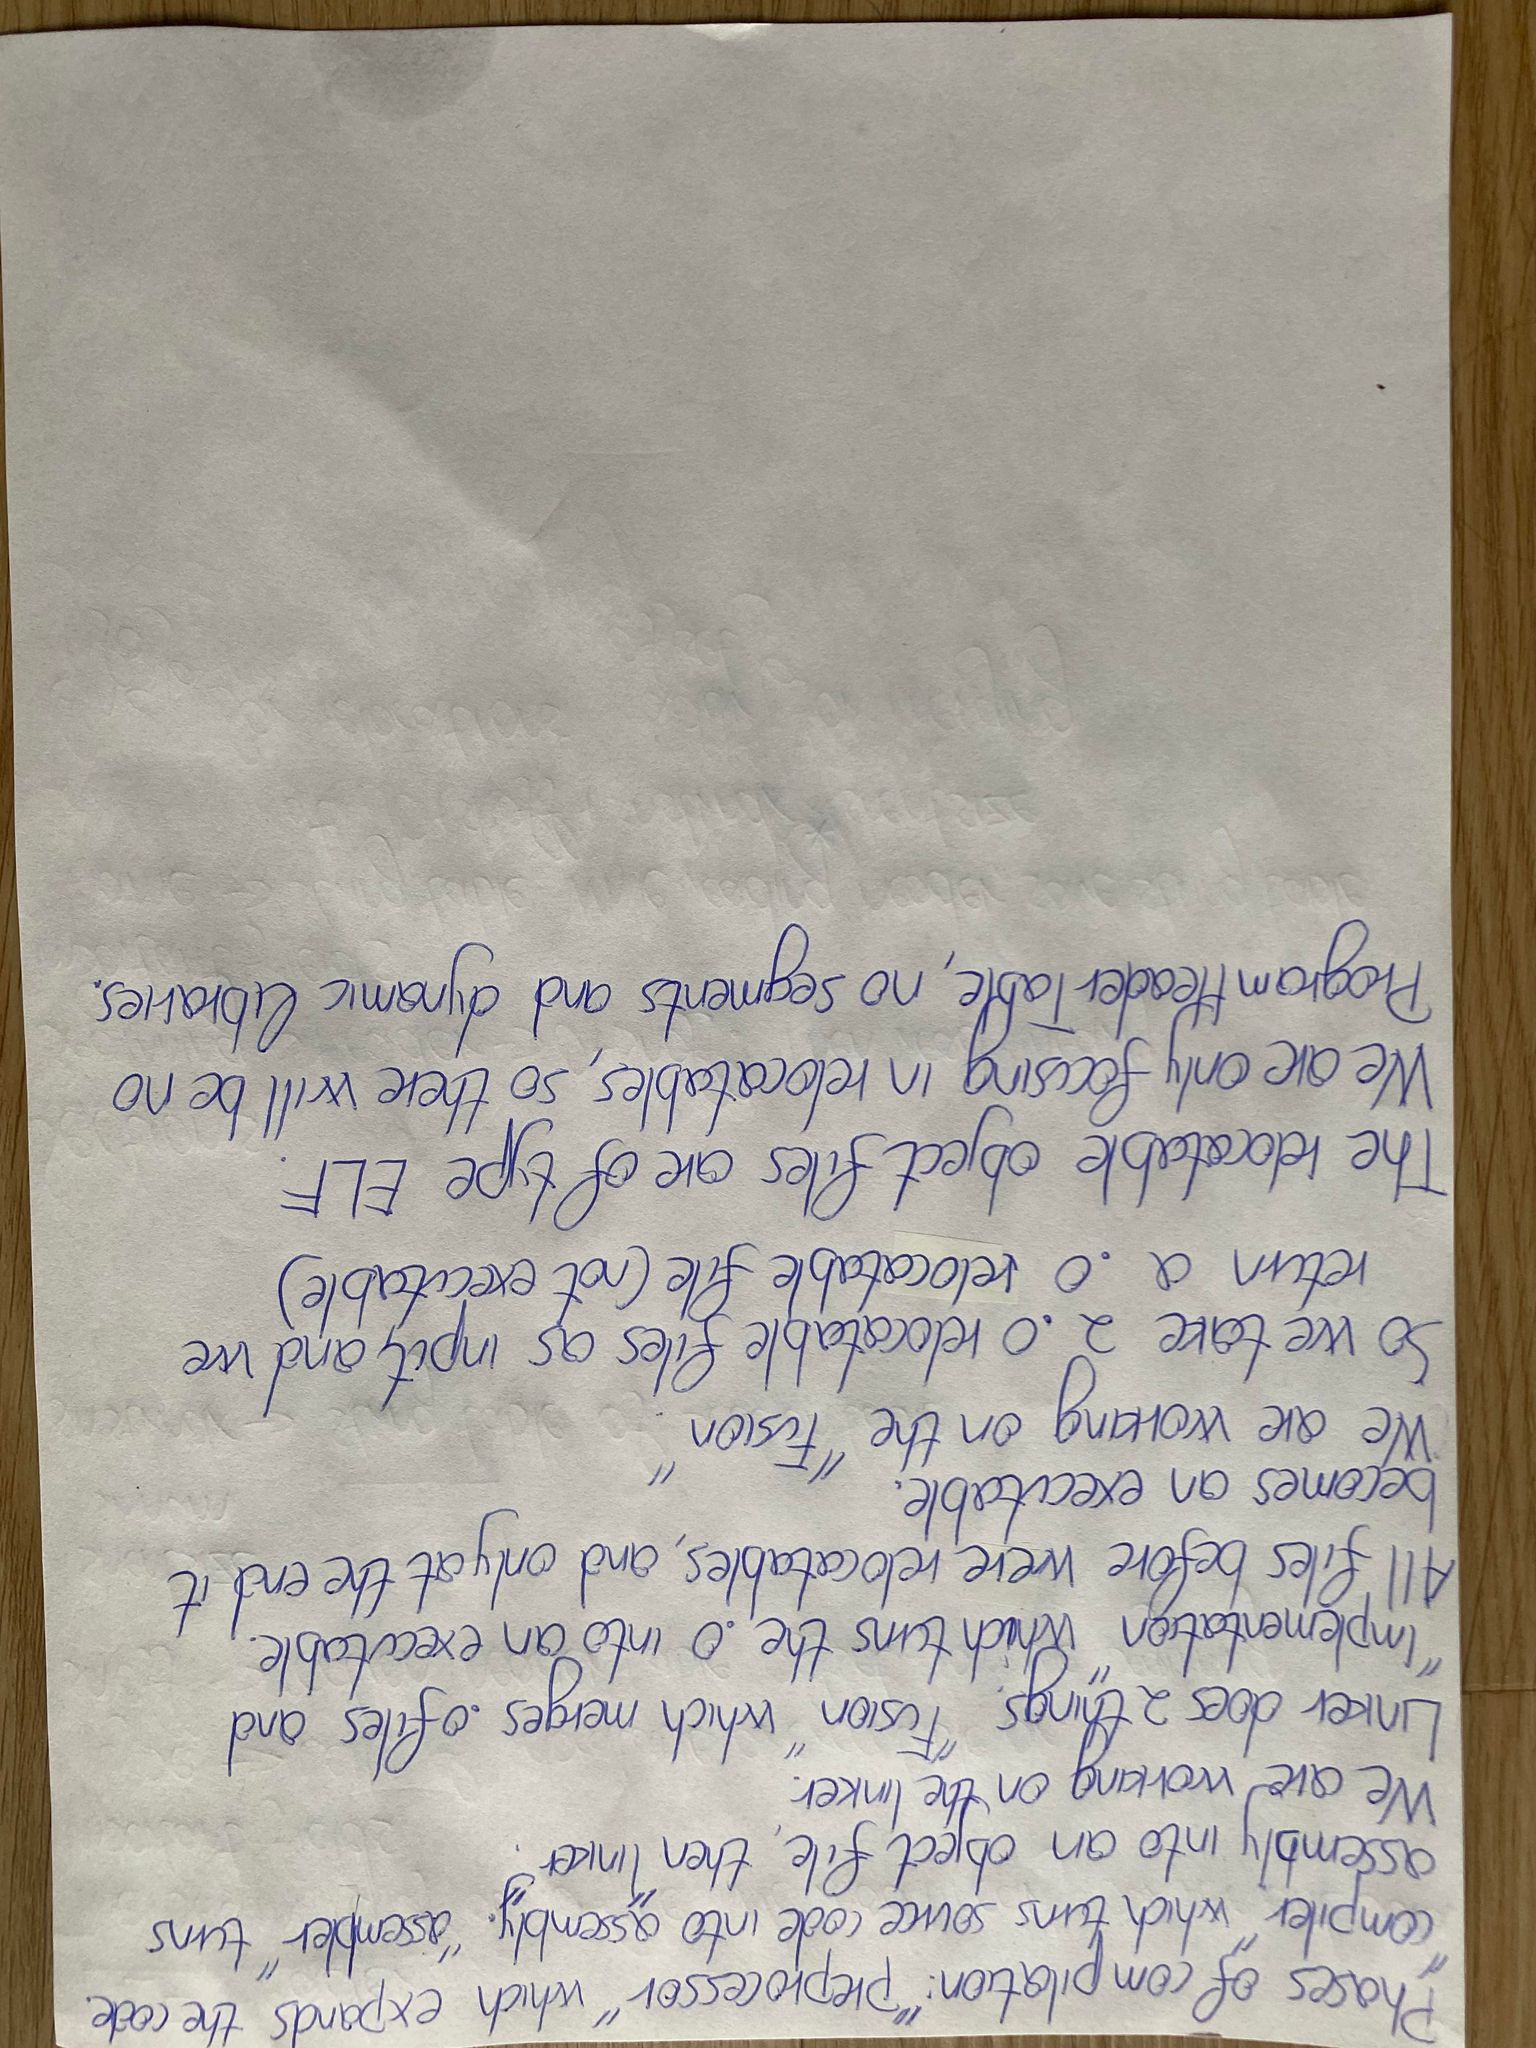 Phases of compilation: "preprocessor" which expands the code.
"compiler" which turns source code into assembly. "assembler" turns
assembly into an object file, then "linker".
We are working on the linker.
Linker does 2 things. "Fusion" which merges .o files and
"Implementation" which turns the .o into an executable.
All files before were relocatables, and only at the end it
becomes an executable.
We are working on the "Fusion".
So we take 2 .o relocatable files as input, and we
return a .o relocatable file (not executable)
The relocatable object files are of type ELF.
We are only focusing in relocatables, so there will be no
Program Header Table, no segments and dynamic libraries.